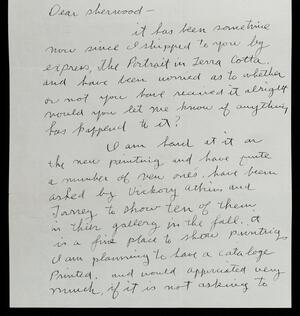 Dear Sherwood —
it has been sometime
now since I shipped to you by
express, the Portrait in Terra Cotta.
and have been worried as to whether
or not you have received it alright
would you let me know if anything
has happend to it?
I am hard at it on
the new painting and have quite
a number of new ones, have been
asked by Vickory Atkins and
Torrey to show ten of them
in thier gallery in the fall. it
is a fine place to show paintings
I am planning to have a cataloge
Printed, and would appreciated very
much, if it is not asking to